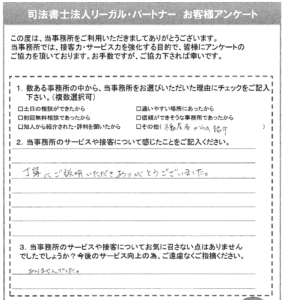 司法書士法人リーガル・パートナー お客様アンケート
この度は、当事務所をご利用いただきましてありがとうございます。
当事務所では、接客力・サービス力を強化する目的で、皆様にアンケートの
ご協力を頂いております。お手数ですが、ご協力下されば幸いです。
1. 数ある事務所の中から、当事務所をお選びいただいた理由にチェックをご記入
下さい。（複数選択可）
□土日の相談ができたから □通いやすい場所にあったから
□初回無料相談であったから □信頼ができそうな事務所であったから
□知人から紹介された・評判を聞いたから □その他(不動産屋からの紹介)
2. 当事務所のサービスや接客について感じたことをご記ください。
丁寧にご説明いただきありがとうございました。
3. 当事務所のサービスや接客についてお気に召さない点はありません
でしたでしょうか？今後のサービス向上の為、ご遠慮なくご指摘ください。
ありませんでした。